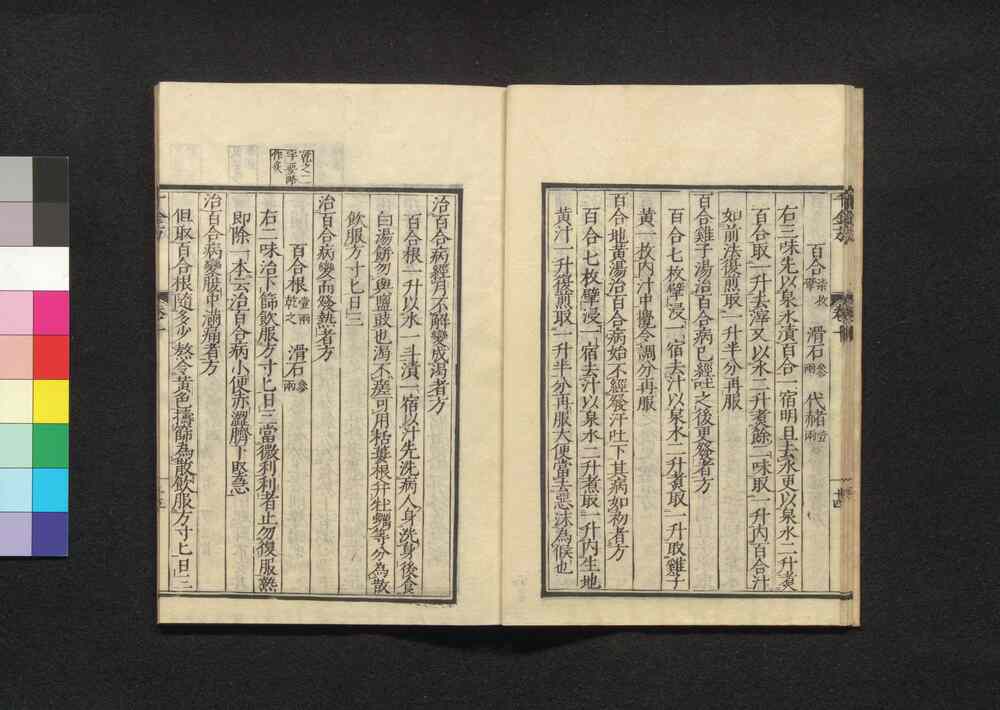 百合柒枚擘 滑石叁兩 代赭壹兩
右三味先以泉水漬百合一宿明旦去水更以泉水二升煮
百合取一升去滓又以水二升煮餘二味取一升內百合汁
如前法復煎取一升半分再服
百合雞子湯治百合病已經吐之後更發者方
百合七枚擘浸一宿去汁以泉水二升煮取一升取雞子
黃一枚內汁中攪令調分再服
百合地黃湯治百合病始不經發汗吐下其病如初者方
百合七枚擘浸一宿去汁以泉水二升煮取一升內生地
黃汁一升復煎取一升半分再服大便當去惡沫為候也
治百合病經月不解變成渴者方
百合根一升以水一斗漬一宿以汁先洗病人身洗身後食
白湯餅勿與鹽豉也渴不差可用栝蔞根幷牡蠣等分為散
飲服方寸匕日三
治百合病變而發熱者方
百合根壹兩乾之 滑石叁兩
右二味治下篩飲服方寸匕日三當微利利者止勿復服熱
即除一本云治百合病小便赤澀臍下堅急
治百合病變腹中滿痛者方
但取百合根隨多少熬令黃色擣篩為散飲服方寸匕日三